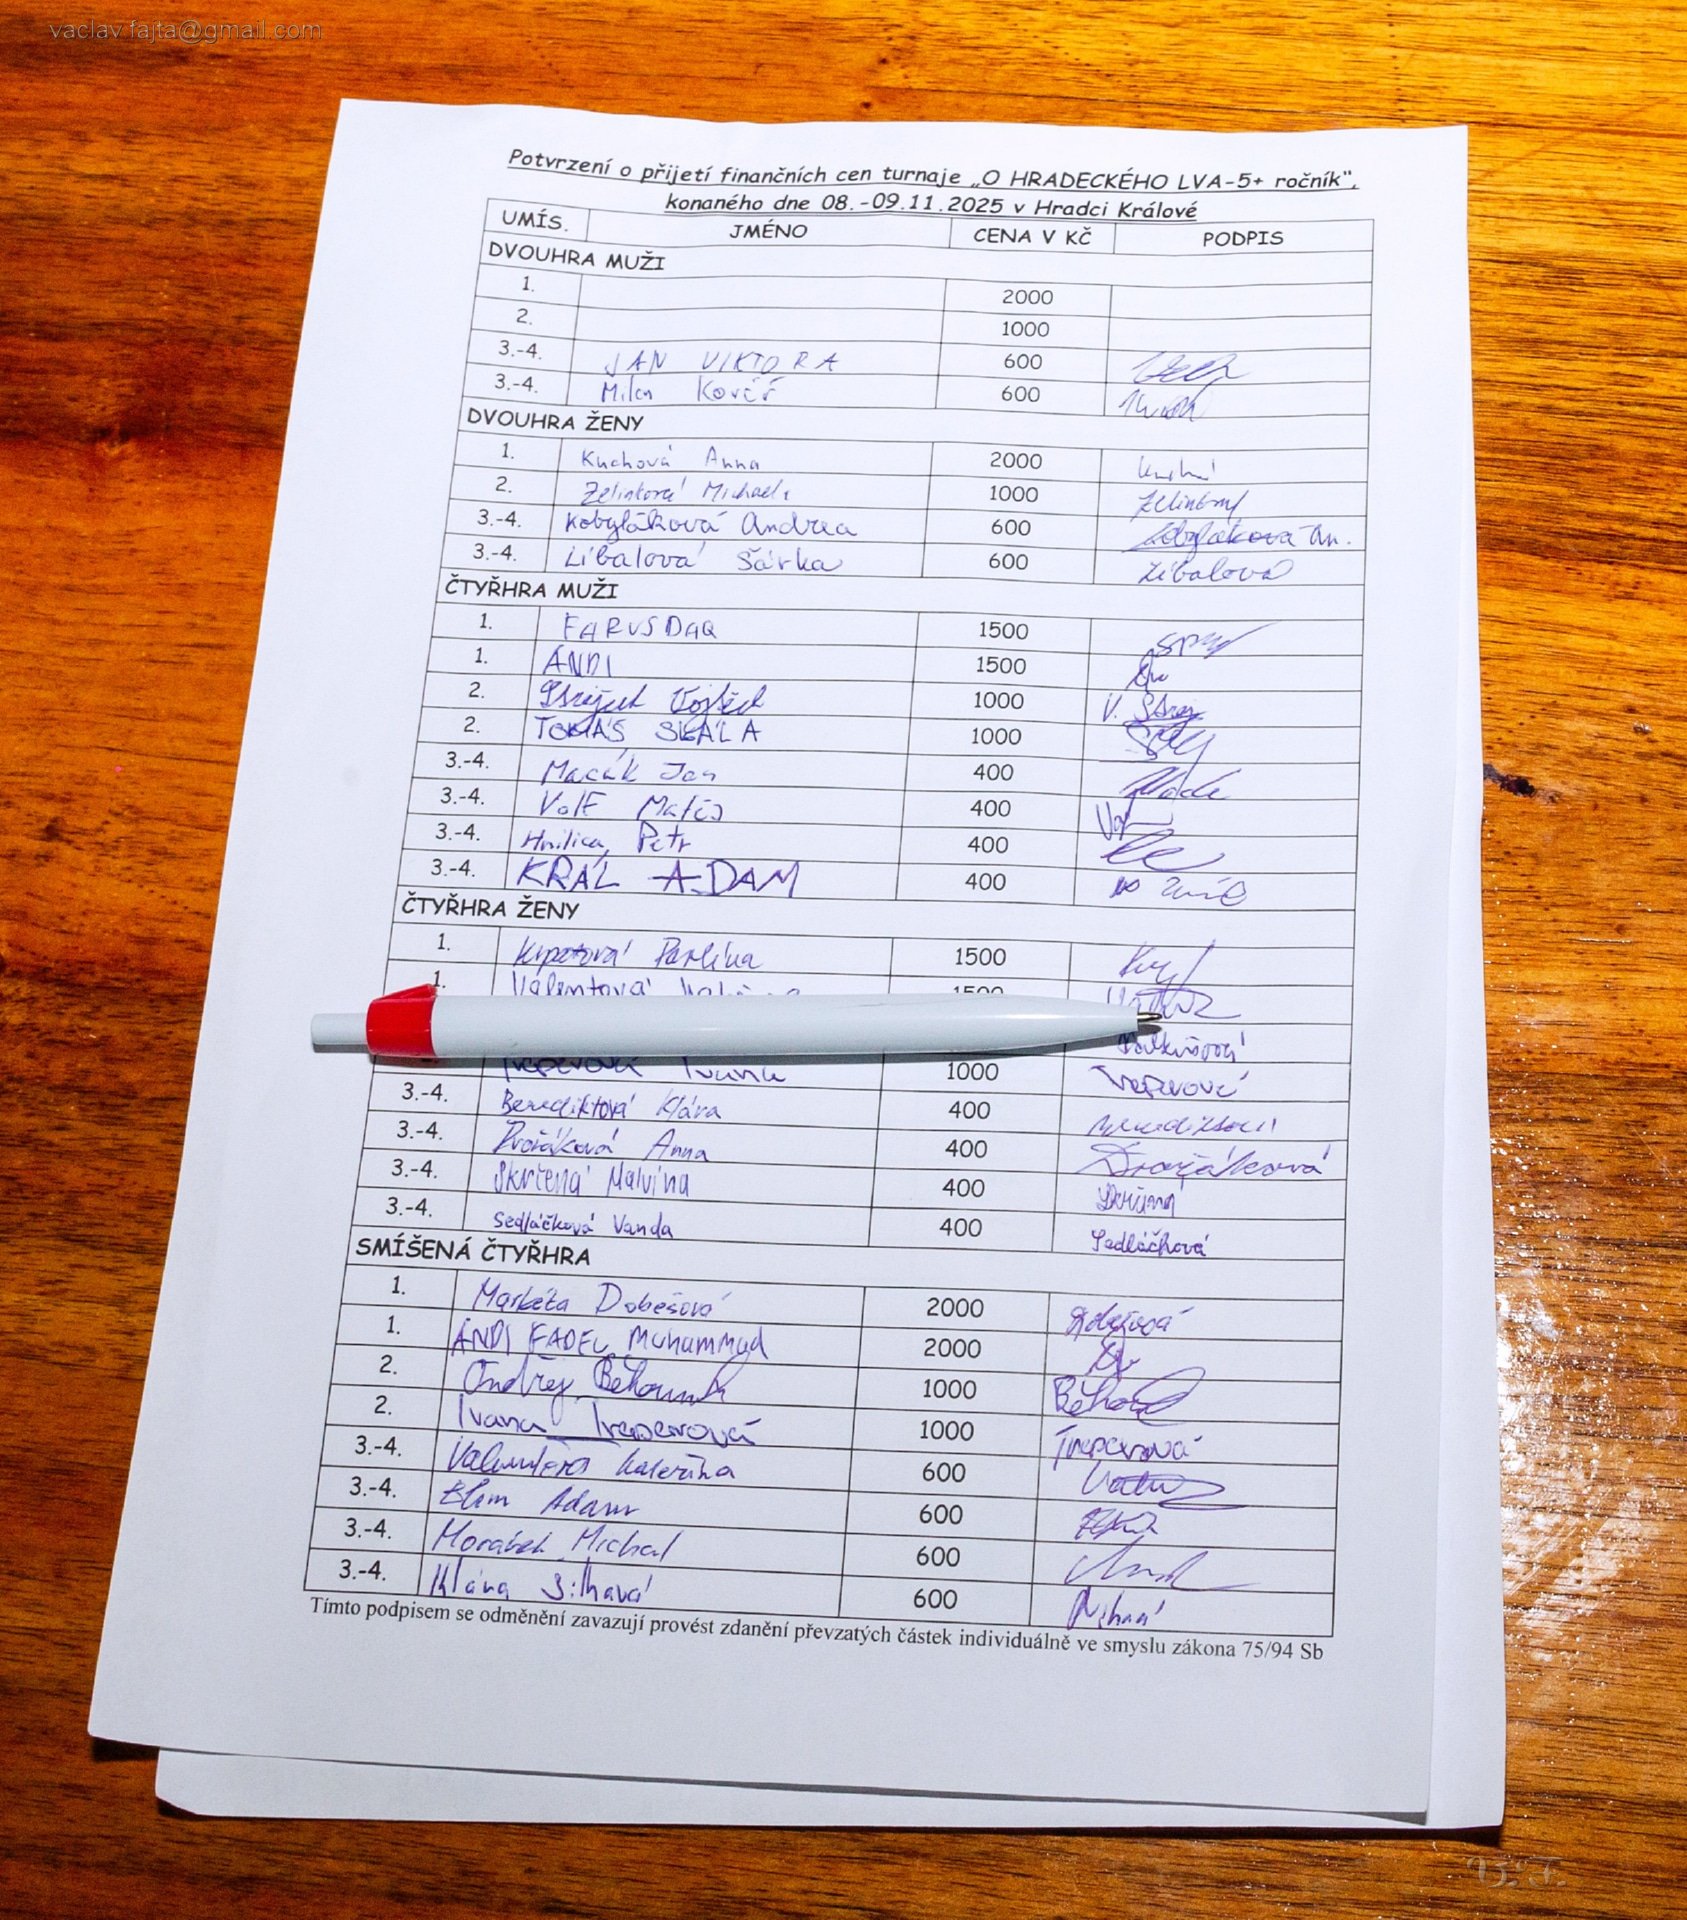 vaclav.fajta@gmail.com
Potvrzení o přijetí finančních cen turnaje „O HRADECKÉHO LVA-5+ ročník“,
konaného dne 08.-09.11.2025 v Hradci Králové
UMÍS. JMÉNO CENA V KČ PODPIS
DVOUHRA MUŽI
1. 2000
2. 1000
3.-4. JAN VIKTORA 600
3.-4. Milan Kovář 600
DVOUHRA ŽENY
1. Kuchová Anna 2000
2. Zelinková Michaela 1000
3.-4. Kobyláková Andrea 600 Kobyláková An.
3.-4. Líbalová Šárka 600 Líbalová
ČTYŘHRA MUŽI
1. FARUSDAQ 1500
1. ANDI 1500
2. Vojtěch 1000
2. TOMÁŠ SKÁLA 1000
3.-4. Macák Jan 400
3.-4. Volf Matěj 400
3.-4. Hnilica Petr 400
3.-4. KRÁL ADAM 400
ČTYŘHRA ŽENY
1. Krpatová Pavlína 1500
1. Valentová 1500
Treperová Ivana 1000 Treperová
3.-4. Benediktová Klára 400
3.-4. Dvořáková Anna 400 Dvořáková
3.-4. Skřčená Malvína 400
3.-4. Sedláčková Vanda 400 Sedláčková
SMÍŠENÁ ČTYŘHRA
1. Markéta Dobešová 2000 Dobešová
1. ANDI FADEL Muhammad 2000
2. Ondřej Běhounek 1000
2. Ivana Treperová 1000 Treperová
3.-4. Valentová Kateřina 600
3.-4. Adam 600
3.-4. Morávek Michal 600
3.-4. Klára Šilhavá 600
Tímto podpisem se odměnění zavazují provést zdanění převzatých částek individuálně ve smyslu zákona 75/94 Sb
V.F.